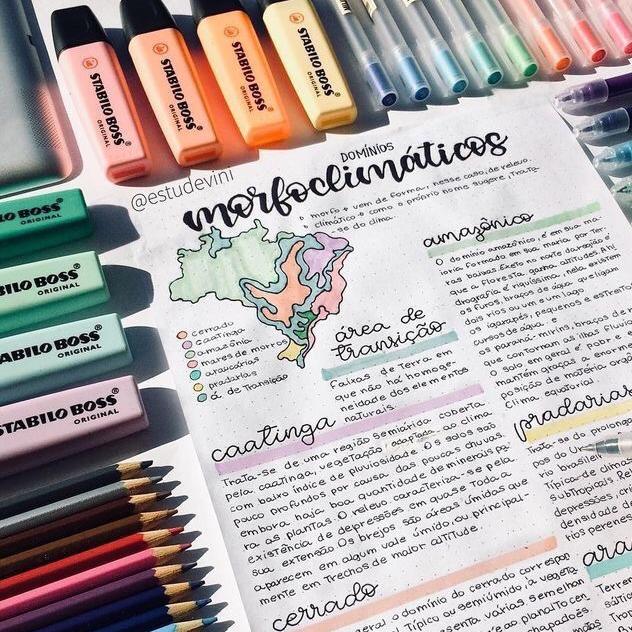 STABILO BOSS
ORIGINAL
STABILO BOSS
ORIGINAL
STABILO BOSS
ORIGINAL
STABILO BOSS
ORIGINAL
LO BOSS
ORIGINAL
ILO BOSS
ORIGINAL
BILO BOSS
ORIGINAL
STABILO BOSS
ORIGINAL
@estudevini
DOMÍNIOS
morfoclimáticos
morfo → vem de forma, nesse caso, de relevo.
climático → como o próprio nome sugere, trata-
se do clima.
cerrado
caatinga
amazônia
mares de morros
araucárias
pradarias
á. de Transição
área de
transição
Faixas de Terra em
que não há homoge-
neidade dos elementos
naturais.
caatinga
Trata-se de uma região semiárida coberta
pela caatinga, vegetação adaptada ao clima
com baixo índice de pluviosidade. Os solos são
pouco profundos por causa das poucas chuvas,
embora haja boa quantidade de minerais pa-
ra as plantas. O relevo caracteriza-se pela
existência de depressões em quase toda a
sua extensão. Os brejos são áreas úmidas que
aparecem em algum vale úmido, ou principal-
mente em Trechos de maior altitude.
cerrado
geral o domínio do cerrado corresp
Típico ou semiúmido, a vegeta
amazônico
O domínio amazônico, é em sua ma-
ioria formado em sua maria por Ter-
ras baixas. Exeto no norte da região é
que a floresta ganha altitudes. A hi
drografia é riquíssima, nela existem
os furos, braços de água que ligam
dois rios ou um a um lago.
os igarapés, pequenos e estreitos
cursos de água. E
os paraná-mirins, braços de r
que contornam as ilhas fluvia
O solo em geral é pobre e
mantém graças a
posição de matéria
Clima equatorial.
pradarias
Trata-se do prolonga
rio brasileiro
Típica de climas
subtropicais. Re
depressões,
densidade d
rios perenes
ara